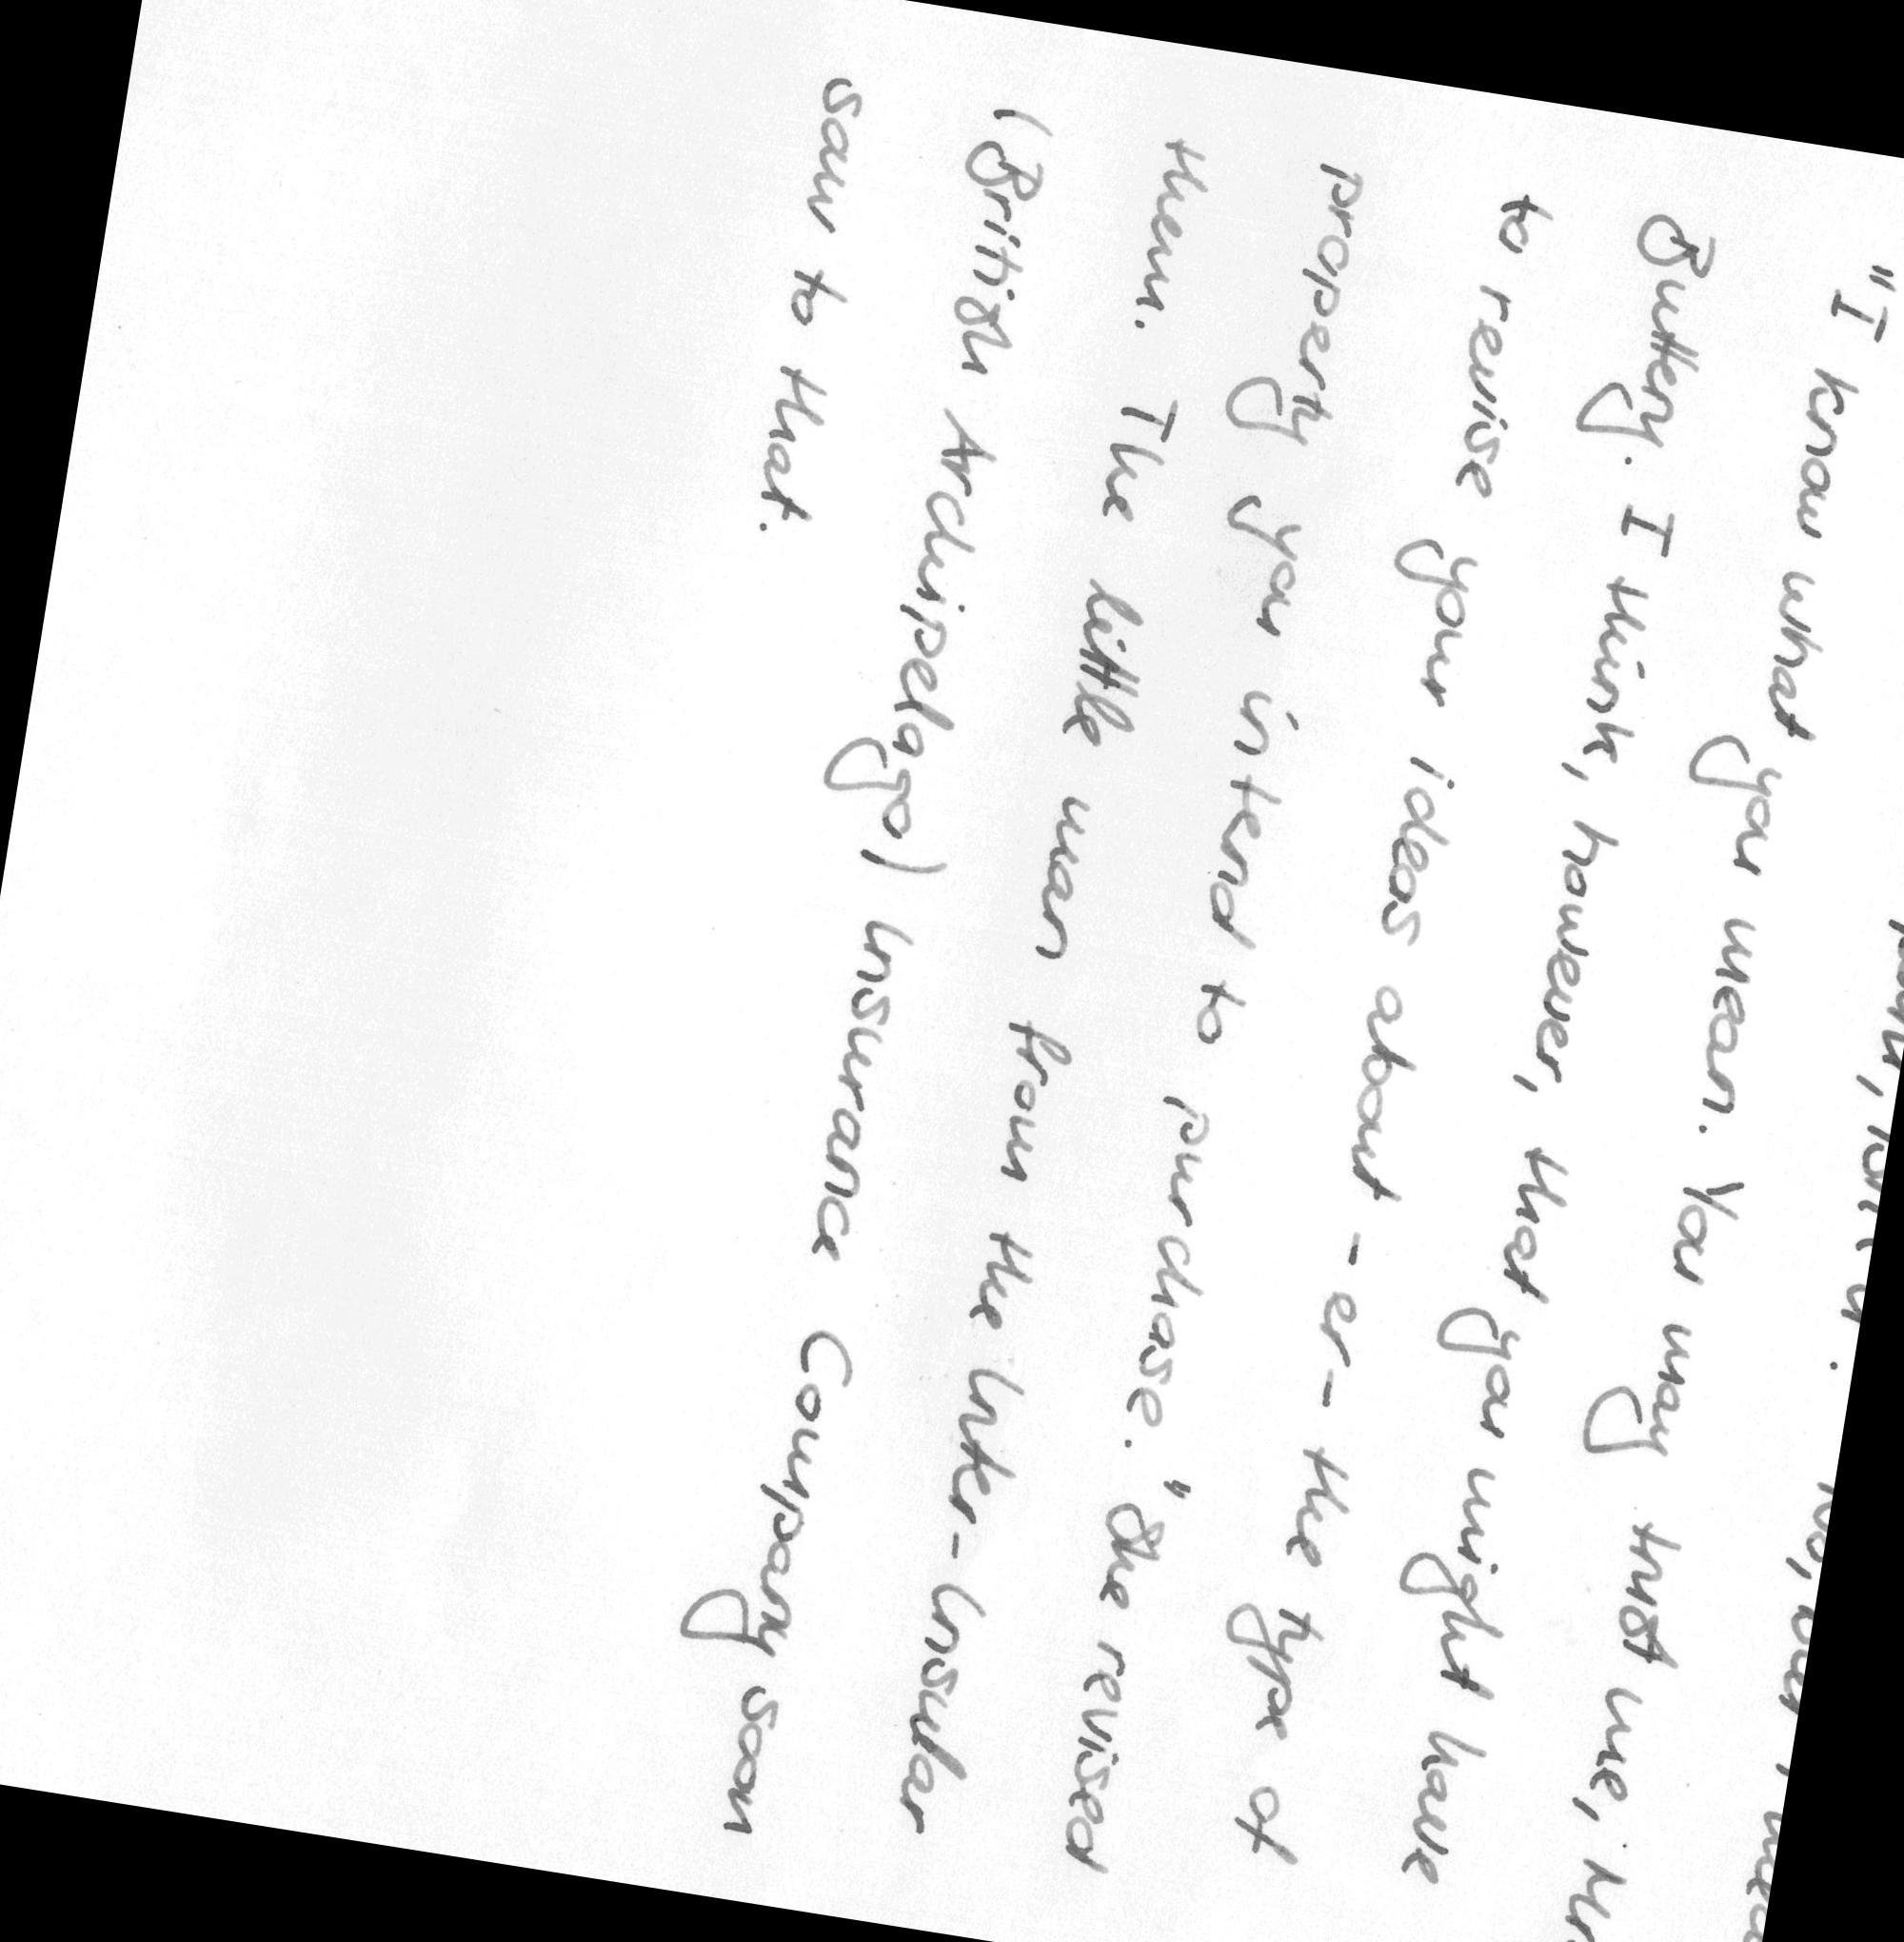 "I know what you mean. You may trust me, Mr
Buttery. I think, however, that you might have
to revise your ideas about - er - the type of
property you intend to purchase." She revised
them. The little man from the Inter-Insular
(British Archipelago) Insurance Company soon
saw to that.